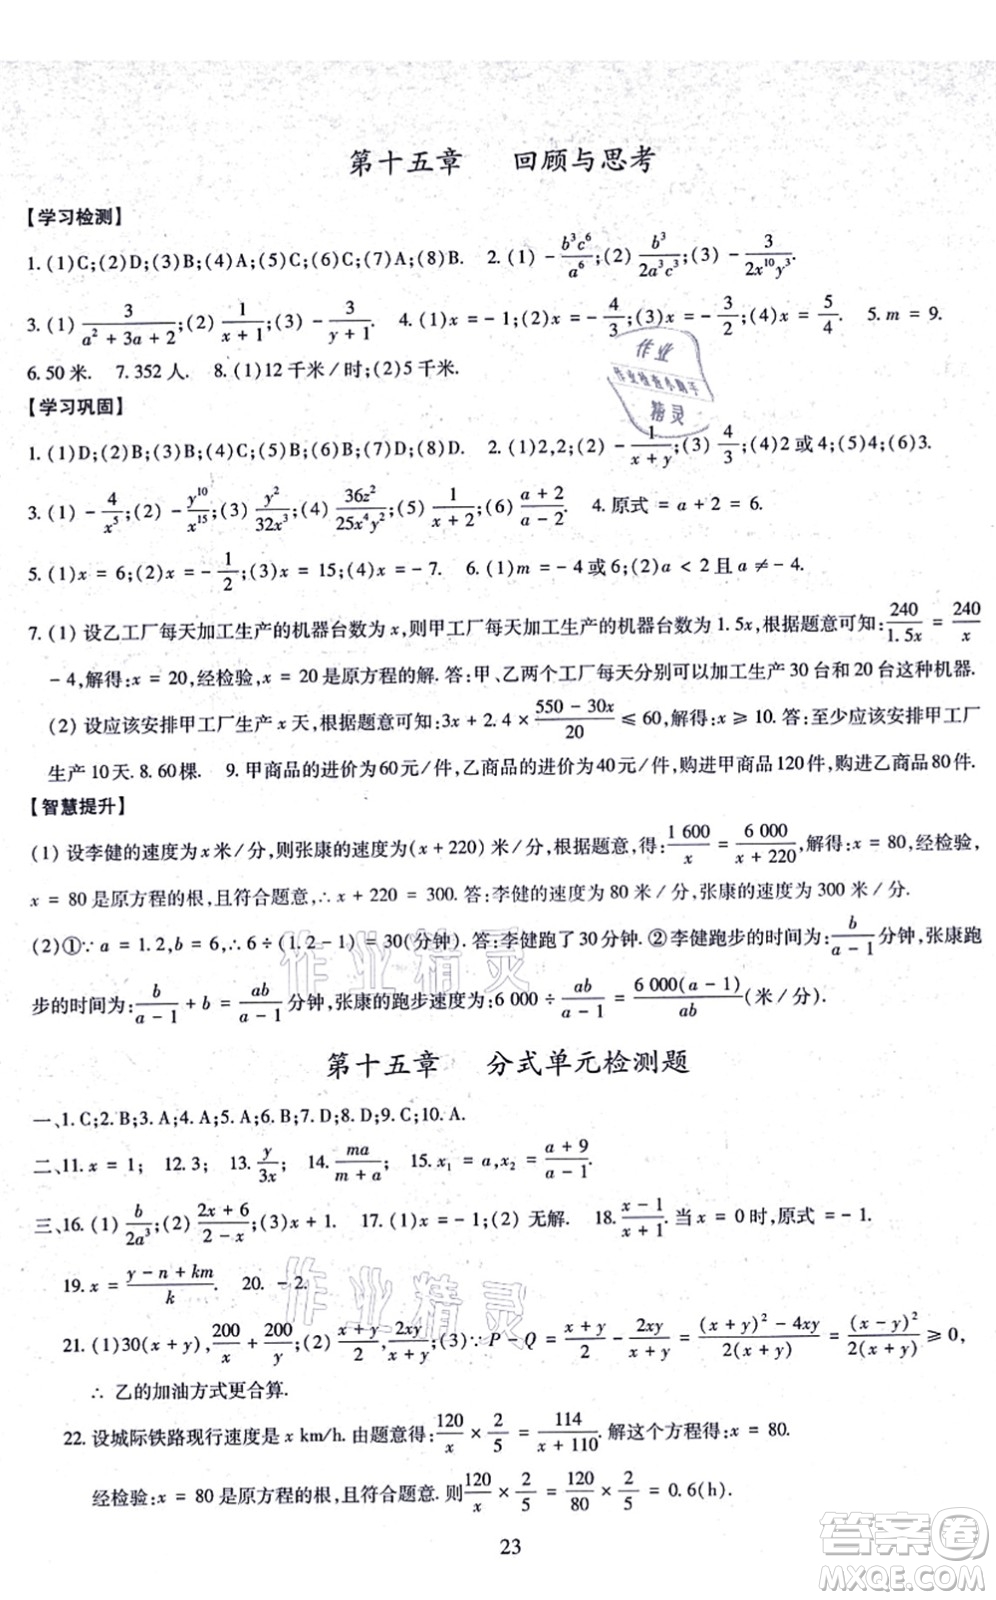 第十五章 回顾与思考
【学习检测】
1. (1)C;(2)D;(3)B;(4)A;(5)C;(6)C;(7)A;(8)B. 2. (1) -b³c⁶/a⁶;(2) b³/2a³c³;(3) -3/2x¹⁰y³.
3. (1) 3/(a² + 3a + 2);(2) 1/(x + 1);(3) -3/(y + 1). 4. (1)x = -1;(2)x = -4/3;(3)x = -3/2;(4)x = 5/4. 5. m = 9.
6. 50 米. 7. 352 人. 8. (1)12 千米/时;(2)5 千米.
【学习巩固】
1. (1)D;(2)D;(3)B;(4)B;(5)B;(6)C;(7)D;(8)D. 2. (1)2,2;(2) -1/(x + y);(3) 4/3;(4)2 或 4;(5)4;(6)3.
3. (1) -4/x⁵;(2) -y¹⁰/x¹⁵;(3) y²/32x³;(4) 36z²/25x⁴y²;(5) 1/(x + 2);(6) (a + 2)/(a - 2). 4. 原式 = a + 2 = 6.
5. (1)x = 6;(2)x = -1/2;(3)x = 15;(4)x = -7. 6. (1)m = -4 或 -6;(2)a < 2 且 a ≠ -4.
7. (1) 设乙工厂每天加工生产的机器台数为 x,则甲工厂每天加工生产的机器台数为 1.5x,根据题意可知:240/1.5x = 240/x
-4,解得:x = 20,经检验,x = 20 是原方程的解.答:甲、乙两个工厂每天分别可以加工生产 30 台和 20 台这种机器.
(2) 设应该安排甲工厂生产 x 天,根据题意可知:3x + 2.4 × (550 - 30x)/20 ≤ 60,解得:x ≥ 10.答:至少应该安排甲工厂
生产 10 天. 8. 60 棵. 9. 甲商品的进价为60元/件,乙商品的进价为40元/件,购进甲商品120件,购进乙商品80件.
【智慧提升】
(1) 设李健的速度为 x 米/分,则张康的速度为(x + 220) 米/分,根据题意,得:1 600/x = 6 000/(x + 220),解得:x = 80,经检验,
x = 80 是原方程的根,且符合题意,∴ x + 220 = 300.答:李健的速度为 80 米/分,张康的速度为 300 米/分.
(2)①∵ a = 1.2,b = 6,∴ 6 ÷ (1.2 - 1) = 30(分钟).答:李健跑了 30 分钟.②李健跑步的时间为:b/(a - 1)分钟,张康跑
步的时间为:b/(a - 1) + b = ab/(a - 1)分钟,张康的跑步速度为:6 000 ÷ ab/(a - 1) = 6 000(a - 1)/ab(米/分).
第十五章 分式单元检测题
一、1. C;2. B;3. A;4. A;5. A;6. B;7. D;8. D;9. C;10. A.
二、11. x = 1; 12. 3; 13. y/3x; 14. ma/(m + a); 15. x₁ = a,x₂ = (a + 9)/(a - 1).
三、16. (1) b/2a³;(2) (2x + 6)/(2 - x);(3)x + 1. 17. (1)x = -1;(2) 无解. 18. (x - 1)/(x + 1).当 x = 0 时,原式 = -1.
19. x = (y - n + km)/k. 20. -2.
21. (1)30(x + y),200/x + 200/y;(2) (x + y)/2,2xy/(x + y);(3)∵ P - Q = (x + y)/2 - 2xy/(x + y) = ((x + y)² - 4xy)/2(x + y) = (x - y)²/2(x + y) ≥ 0,
∴ 乙的加油方式更合算.
22. 设城际铁路现行速度是 x km/h.由题意得:120/x × 2/5 = 114/(x + 110).解这个方程得:x = 80.
经检验:x = 80 是原方程的根,且符合题意.则120/x × 2/5 = 120/80 × 2/5 = 0.6(h).
23
作业
作业检查小助手
精灵
作业精灵
作业精灵
答案卷
MXQE.COM